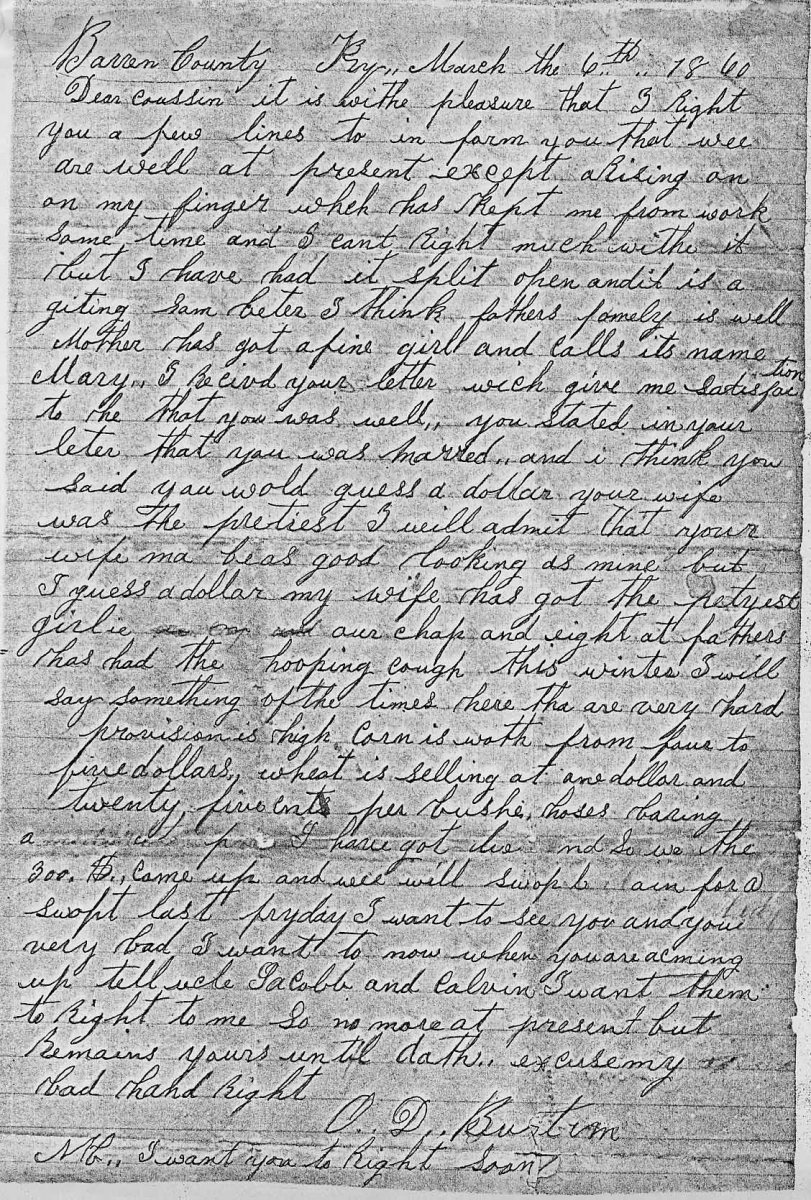 Barren County Ky,, March the 6.th.. 1860
Dear coussin it is withe pleasure that I Right
you a few lines to in form you that wee
are well at present except aRising on
on my finger which has kept me from work
some time and I cant Right much withe it
but I have had it split open andit is a
giting sam beter I think fathers famely is well
Mother has got afine girl and calls its name
Mary,, I Recivd your letter wich give me satisfaction
to he that you was well,, you stated in your
leter that you was marred,, and i think you
said you wold guess a dollar your wife
was the pretiest I will admit that your
wife ma be as good looking as mine but
I guess adollar my wife has got the petyest
girl ie our chap and eight at fathers
has had the hooping cough this winter I will
say something of the times here tha are very hard
provision is high corn is woth from four to
five dollars,, wheat is selling at one dollar and
twenty five cnts per bushe, hoses baring
a I have got the
300. come up and wee will swop for a
swopt last fryday I want to see you and your
very bad I want to now when you are acming
up tell ucle Jacobb and Calvin I want them
to Right to me So no more at present but
Remains yours until dath,, excuse my
bad hand Right
O.. D.. Burtim
NB,, I want you to Right soon